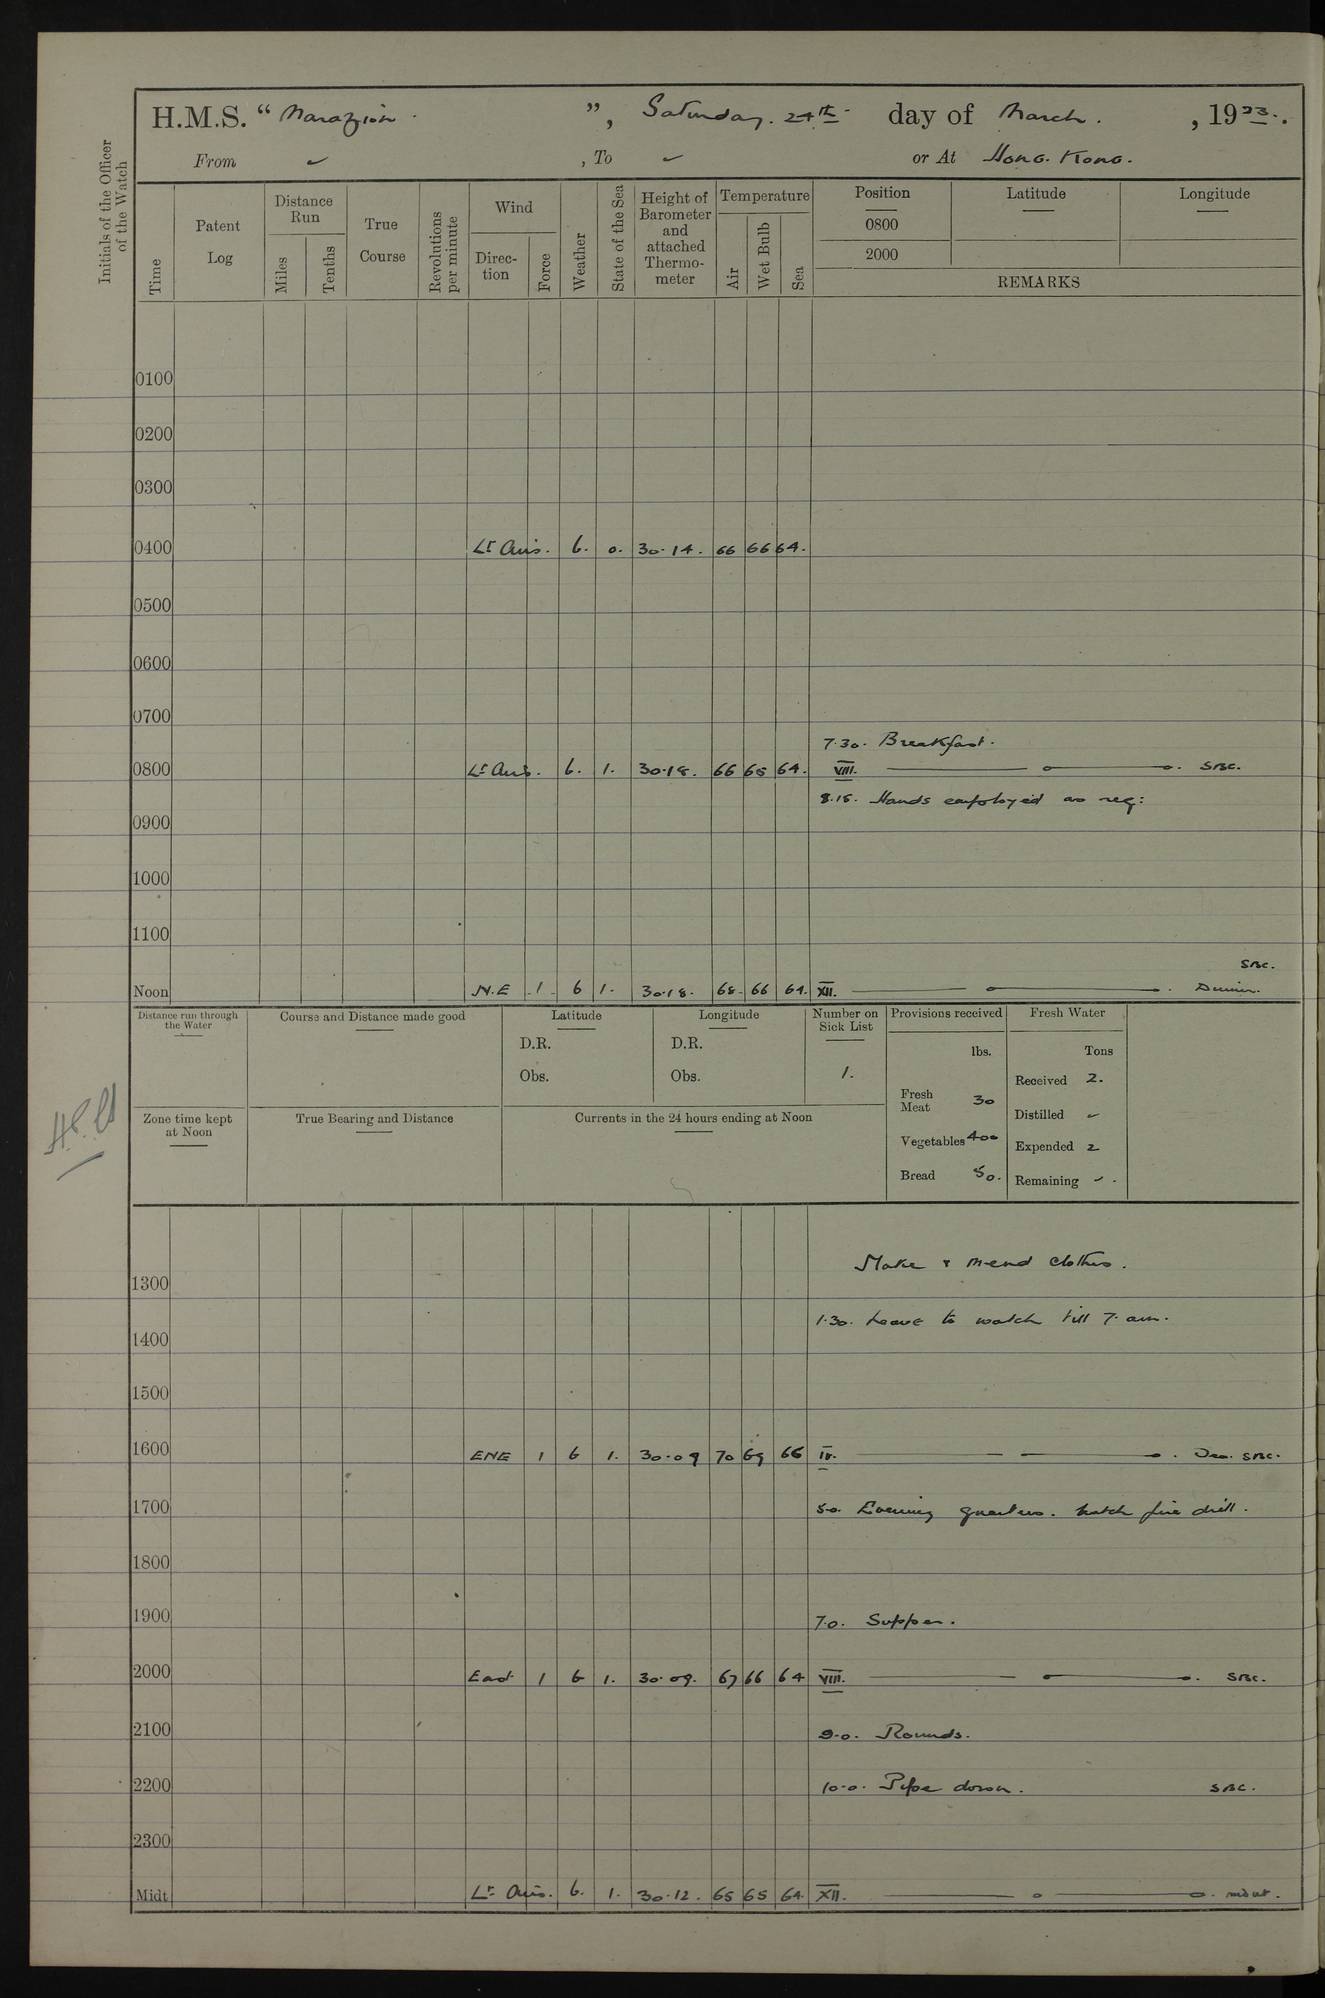 H.M.S. “ Marazion ”, Saturday. 24th day of March. , 1923.
From ✓ , To ✓ or At Hong. Kong.
Initials of the Officer of the Watch
Time
Patent Log
Distance Run
Miles
Tenths
True Course
Revolutions per minute
Wind
Direc-tion
Force
Weather
State of the Sea
Height of Barometer and attached Thermo-meter
Temperature
Air
Wet Bulb
Sea
Position
0800
2000
Latitude
Longitude
REMARKS
0100
0200
0300
0400 Lt Airs. b. 0. 30.14. 66 66 64.
0500
0600
0700
7.30. Breakfast.
0800 Lt Airs. b. 1. 30.18. 66 65 64. VIII. SBC.
8.15. Hands employed as req:
0900
1000
1100
SBC.
Noon N.E 1. b 1. 30.18. 68. 66 64. XII. Dinner.
Distance run through the Water
Course and Distance made good
Latitude
D.R.
Obs.
Longitude
D.R.
Obs.
Number on Sick List
1.
Provisions received
lbs.
Fresh Meat 30
Vegetables 400
Bread 50.
Fresh Water
Tons
Received 2.
Distilled ✓
Expended 2
Remaining ✓.
Zone time kept at Noon
True Bearing and Distance
Currents in the 24 hours ending at Noon
Make & mend clothes.
1300
1.30. Leave to watch till 7. am.
1400
1500
1600 ENE 1 b 1. 30.09 70 69 66 IV. Tea. SBC.
1700 5.0. Evening quarters. Watch fire drill.
1800
1900 7.0. Supper.
2000 East 1 b 1. 30.09. 67 66 64 VIII. SBC.
2100 9.0. Rounds.
2200 10.0. Pipe down. SBC.
2300
Midt Lt Airs. b. 1. 30.12. 65 65 64. XII.